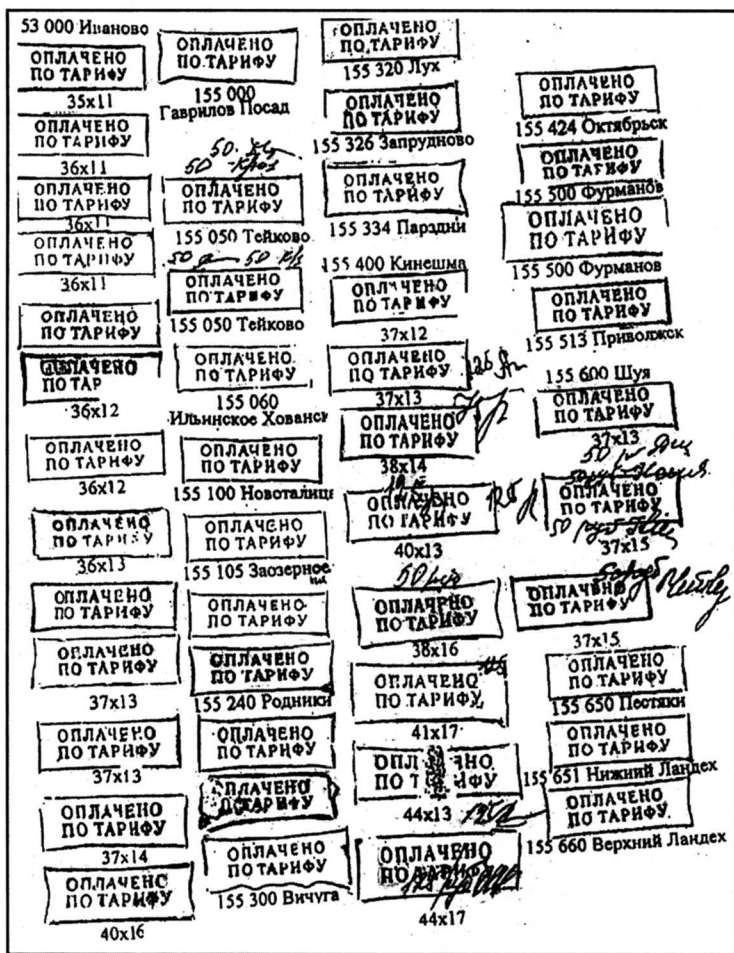 53 000 Иваново
ОПЛАЧЕНО
ПО ТАРИФУ
35x11
ОПЛАЧЕНО
ПО ТАРИФУ
36x11
ОПЛАЧЕНО
ПО ТАРИФУ
36x11
ОПЛАЧЕНО
ПО ТАРИФУ
36x11
ОПЛАЧЕНО
ПО ТАРИФУ
ОПЛАЧЕНО
ПО ТАР
36x12
ОПЛАЧЕНО
ПО ТАРИФУ
36x12
ОПЛАЧЕНО
ПО ТАРИФУ
36x13
ОПЛАЧЕНО
ПО ТАРИФУ
ОПЛАЧЕНО
ПО ТАРИФУ
37x13
ОПЛАЧЕНО
ПО ТАРИФУ
37x13
ОПЛАЧЕНО
ПО ТАРИФУ
37x14
ОПЛАЧЕНО
ПО ТАРИФУ
40x16
ОПЛАЧЕНО
ПО ТАРИФУ
155 000
Гаврилов Посад
50
50
ОПЛАЧЕНО
ПО ТАРИФУ
155 050 Тейково
50 50
ОПЛАЧЕНО
ПО ТАРИФУ
155 050 Тейково
ОПЛАЧЕНО
ПО ТАРИФУ
155 060
Ильинское Хованск
ОПЛАЧЕНО
ПО ТАРИФУ
155 100 Новоталицы
ОПЛАЧЕНО
ПО ТАРИФУ
155 105 Заозерное
ОПЛАЧЕНО
ПО ТАРИФУ
ОПЛАЧЕНО
ПО ТАРИФУ
155 240 Родники
ОПЛАЧЕНО
ПО ТАРИФУ
ОПЛАЧЕНО
ПО ТАРИФУ
ОПЛАЧЕНО
ПО ТАРИФУ
155 300 Вичуга
ОПЛАЧЕНО
ПО ТАРИФУ
155 320 Лух
ОПЛАЧЕНО
ПО ТАРИФУ
155 326 Запрудново
ОПЛАЧЕНО
ПО ТАРИФУ
155 334 Парздни
155 400 Кинешма
ОПЛАЧЕНО
ПО ТАРИФУ
37x12
ОПЛАЧЕНО
ПО ТАРИФУ
37x13
ОПЛАЧЕНО
ПО ТАРИФУ
38x14
ОПЛАЧЕНО
ПО ТАРИФУ
125 р
40x13
50 руб
ОПЛАЧЕНО
ПО ТАРИФУ
38x16
ОПЛАЧЕНО
ПО ТАРИФУ
41x17
ОПЛ ЕНО
ПО Т ИФУ
44x13
ОПЛАЧЕНО
ПО ТАРИФУ
44x17
ОПЛАЧЕНО
ПО ТАРИФУ
155 424 Октябрьск
ОПЛАЧЕНО
ПО ТАРИФУ
155 500 Фурманов
ОПЛАЧЕНО
ПО ТАРИФУ
155 500 Фурманов
ОПЛАЧЕНО
ПО ТАРИФУ
155 513 Приволжск
155 600 Шуя
ОПЛАЧЕНО
ПО ТАРИФУ
37x13
ОПЛАЧЕНО
ПО ТАРИФУ
37x15
ОПЛАЧЕНО
ПО ТАРИФУ
37x15
ОПЛАЧЕНО
ПО ТАРИФУ
155 650 Пестяки
ОПЛАЧЕНО
ПО ТАРИФУ
155 651 Нижний Ландех
ОПЛАЧЕНО
ПО ТАРИФУ
155 660 Верхний Ландех